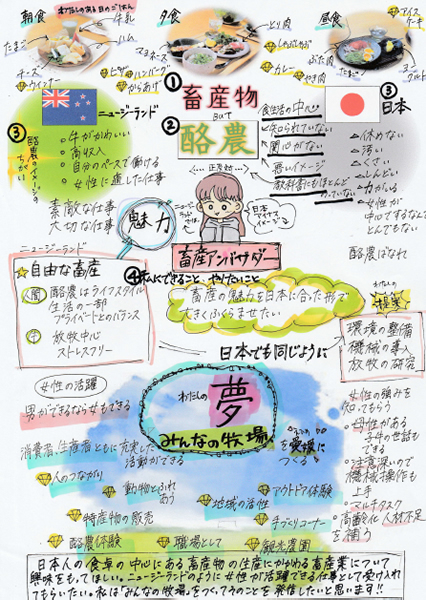 朝食
わたしのある日のごはん
牛乳
たまご
ハム
チーズ
ウインナー
夕食
とり肉
マヨネーズ
ピザ
ハンバーグ
からあげ
カレー
やき肉
昼食
アイスケーキ
ぶた肉
たまご
ヨーグルト
①
畜産物
BUT
②
酪農
食生活の中心
知られていない
関心がない
悪いイメージ
教科書にもほとんど
のっていない
正反対
ニュージーランド
③
酪農のイメージの
ちがい
牛がかわいい
高収入
自分のペースで働ける
女性に適した仕事
素敵な仕事
大切な仕事
③
日本
休めない
汚い
くさい
しんどい
力がいる
女性が
中心でするなんて
とんでもない
酪農ばなれ
魅力
日本
マイナス
イメージ
畜産アンバサダー
ニュージーランド
自由な畜産
人間
酪農はライフスタイル
生活の一部
プライベートとのバランス
牛
放牧中心
ストレスフリー
④私にできること、やりたいこと
畜産の魅力を日本に合った形で
大きくふくらませたい
わたしの
提案
環境の整備
機械の導入
放牧の研究
日本でも同じように
女性の活躍
男ができるなら女もできる
わたしの
夢
みんなの牧場
を愛媛に
つくる
女性の強みを
知ってもらう
母性がある
子牛の世話も
できる
注意深いので
機械操作も
上手
マルチタスク
高齢化、人材不足
を補う
消費者、生産者ともに充実した
活動ができる
人のつながり
動物とふれ
あう
アウトドア体験
地域の活性
特産物の販売
手づくりコーナー
酪農体験
職場として
観光農園
日本人の食卓の中心にある畜産物の生産にかかわる畜産業について
興味をもってほしい。ニュージーランドのように女性が活躍できる仕事として受け入れ
てもらいたい。私は「みんなの牧場」をつくってそのことを発信したいと思います!!